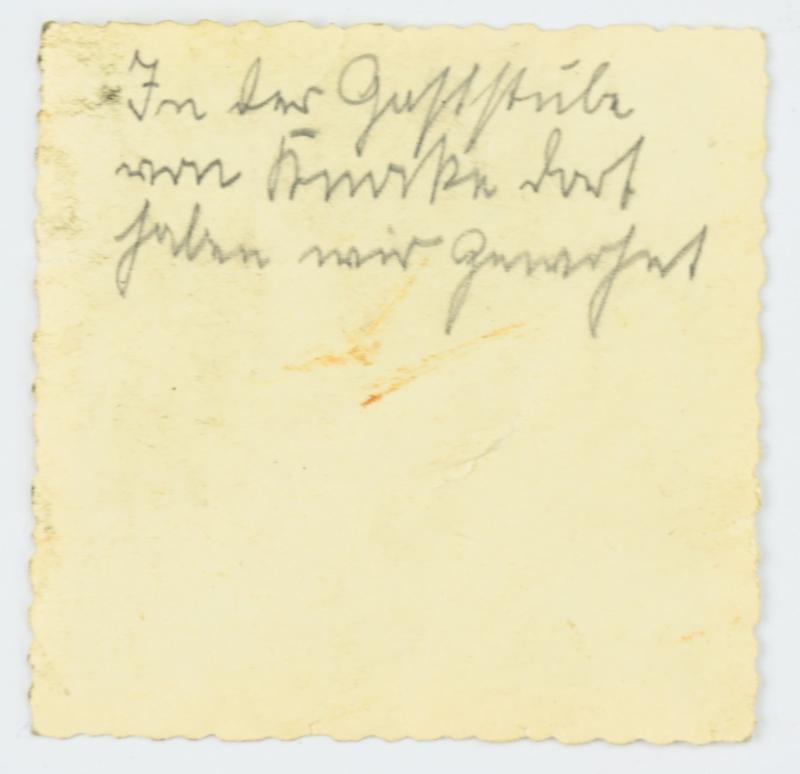 In der Gaststube
von Knorke dort
haben wir gewohnt